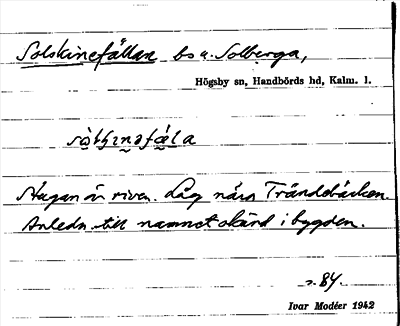 Solskinefällan bs u. Solberga,
Högsby sn, Handbörds hd, Kalm. l.
Stugan är riven. Låg nära Trändebäcken.
Anledn. till namnet okänd i bygden.
s. 84.
Ivar Modéer 1942